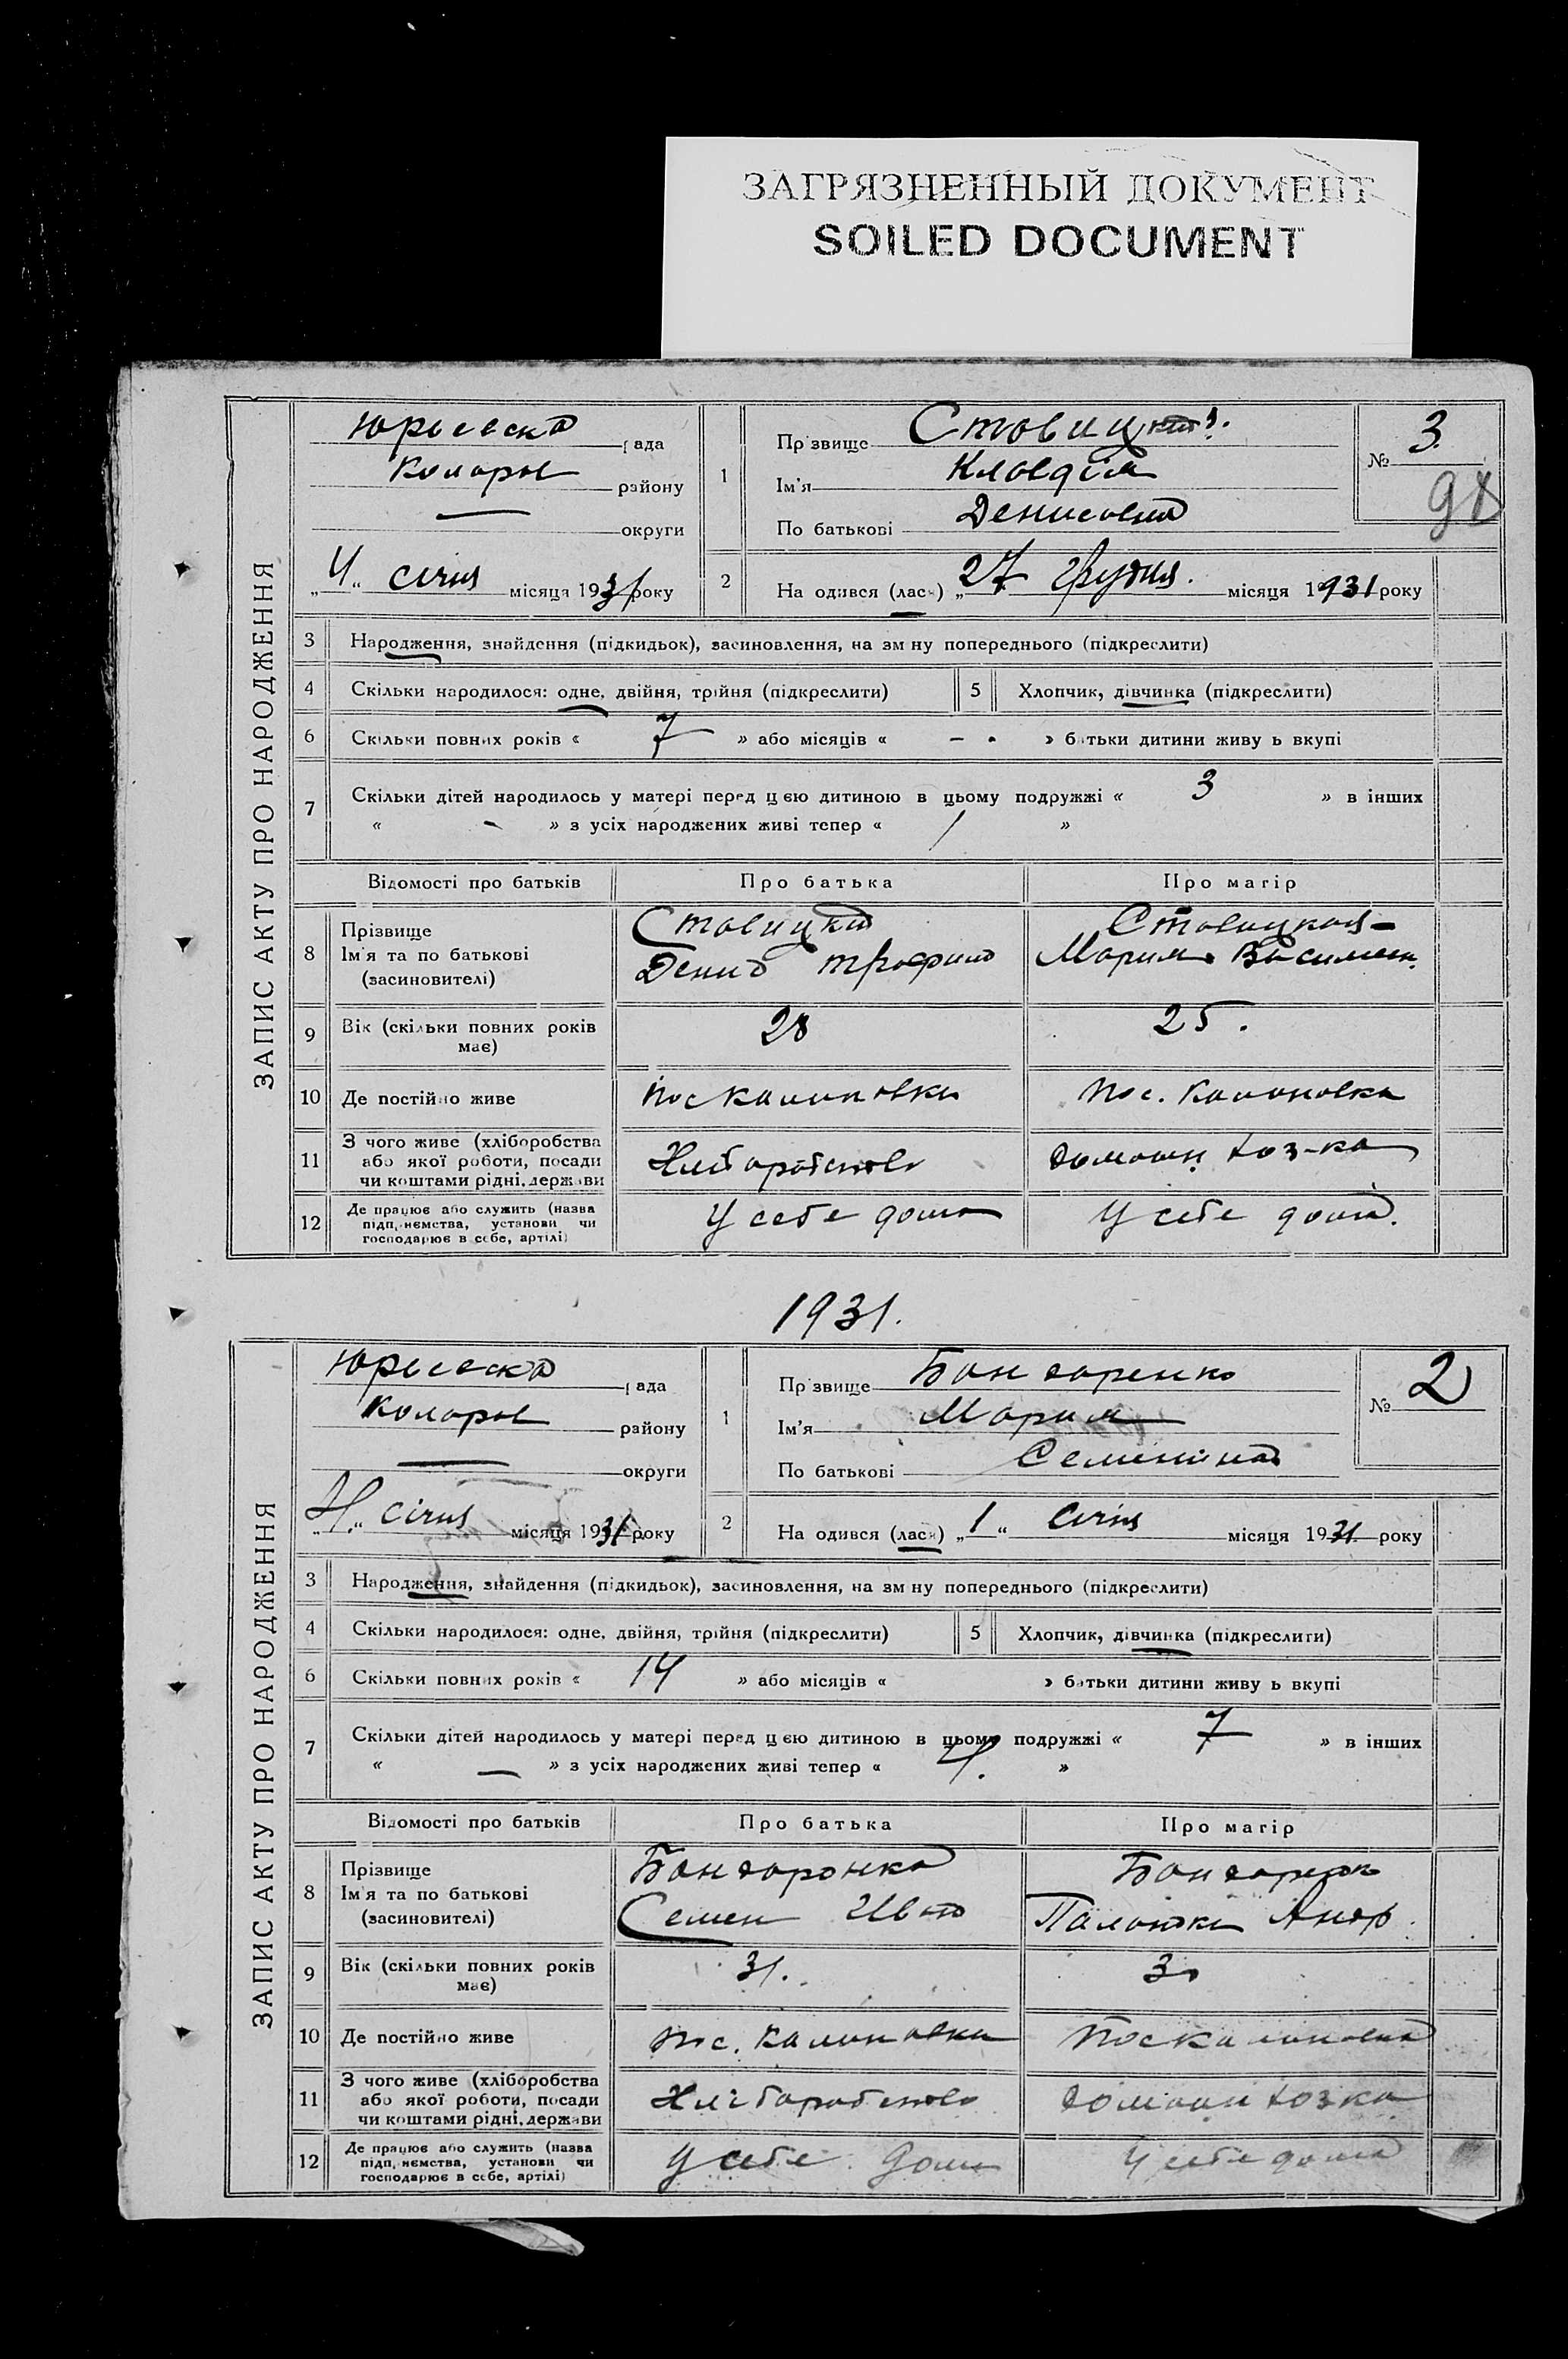 ЗАГРЯЗНЕННЫЙ ДОКУМЕНТ
SOILED DOCUMENT
ЗАПИС АКТУ ПРО НАРОДЖЕННЯ
рада
району
округи
4 " січня місяця 1931 року
1
Прізвище
Ім'я Клавдія
По батькові Денисовна
№ 3
98
2 На одився (лася) „27 грудня місяця 1931 року
3 Народження, знайдення (підкидьок), засиновлення, на зм ну попереднього (підкреслити)
4 Скільки народилося: одне, двійня, трійня (підкреслити) 5 Хлопчик, дівчинка (підкреслити)
6 Скільки повних років « 7 » або місяців « - » батьки дитини живу ь вкупі
7 Скільки дітей народилось у матері перед цією дитиною в цьому подружжі « 3 » в інших
« - » з усіх народжених живі тепер « 1 »
Відомості про батьків Про батька Про матір
8 Прізвище
Ім'я та по батькові
(засиновителі)
9 Вік (скільки повних років має) 28 25.
10 Де постійно живе Пос Калиновка Пос. Калиновка
11 З чого живе (хліборобства
або якої роботи, посади
чи коштами рідні, держави
Хліборобство Домашн хоз-ка
12 Де працює або служить (назва
підп, иємства, установи чи
господарює в себе, артілі)
У себе дома У себе дома.
1931.
ЗАПИС АКТУ ПРО НАРОДЖЕННЯ
рада
району
округи
" січня місяця 1931 року
1
Прізвище Бондаренко
Ім'я Мария
По батькові
№ 2
2 На одився (лася) „1 " січня місяця 1931 року
3 Народження, знайдення (підкидьок), засиновлення, на зм ну попереднього (підкреслити)
4 Скільки народилося: одне, двійня, трійня (підкреслити) 5 Хлопчик, дівчинка (підкреслити)
6 Скільки повних років « 14 » або місяців « » батьки дитини живу ь вкупі
7 Скільки дітей народилось у матері перед цією дитиною в цьому подружжі « 7 » в інших
« — » з усіх народжених живі тепер « »
Відомості про батьків Про батька Про матір
8 Прізвище
Ім'я та по батькові
(засиновителі)
Семен
9 Вік (скільки повних років має) 31. 30
10 Де постійно живе Пос. Калиновка Пос Калиновка
11 З чого живе (хліборобства
або якої роботи, посади
чи коштами рідні, держави
Хліборобство Домашн хозка
12 Де працює або служить (назва
підп, иємства, установи чи
господарює в себе, артілі)
У себе дома У себе дома